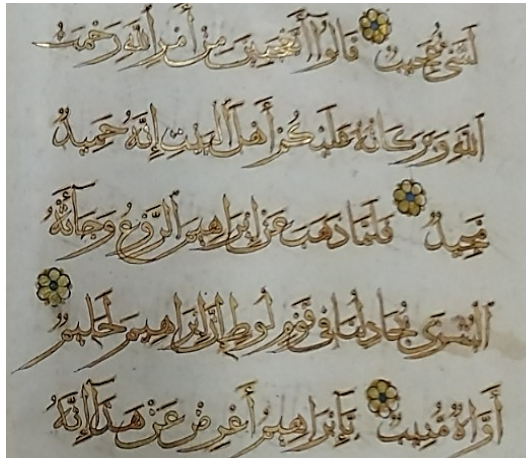 لَشَىْءٌ عَجِيبٌ قَالُوٓا أَتَعْجَبِينَ مِنْ أَمْرِ ٱللَّهِ رَحْمَتُ
ٱللَّهِ وَبَرَكَاتُهُ عَلَيْكُمْ أَهْلَ ٱلْبَيْتِ إِنَّهُ حَمِيدٌ
مَجِيدٌ فَلَمَّا ذَهَبَ عَنْ إِبْرَاهِيمَ ٱلرَّوْعُ وَجَآءَتْهُ
ٱلْبُشْرَى يُجَادِلُنَا فِى قَوْمِ لُوطٍ إِنَّ إِبْرَاهِيمَ لَحَلِيمٌ
أَوَّاهٌ مُنِيبٌ يَآإِبْرَاهِيمُ أَعْرِضْ عَنْ هَذَآ إِنَّهُ